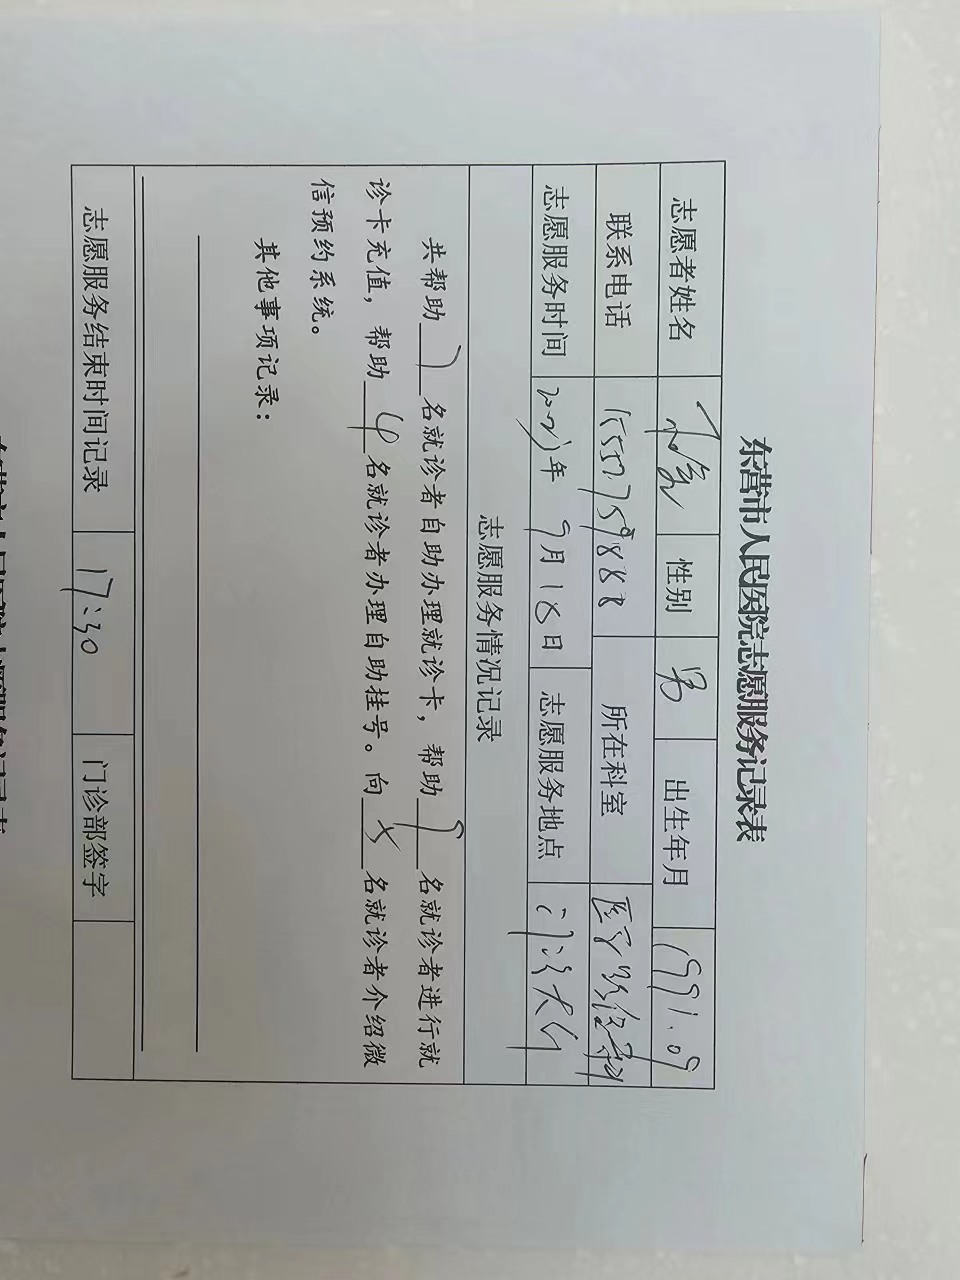 东营市人民医院志愿服务记录表
志愿者姓名 性别 男 出生年月 1991.09
联系电话 所在科室 医学
志愿服务时间 2023年 9月18日 志愿服务地点 门诊大厅
志愿服务情况记录
共帮助 7 名就诊者自助办理就诊卡，帮助 9 名就诊者进行就
诊卡充值，帮助 4 名就诊者办理自助挂号。向 5 名就诊者介绍微
信预约系统。
其他事项记录：
志愿服务结束时间记录 17:30 门诊部签字